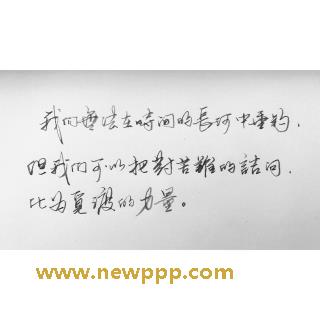 我们無法在時间的長河中垂钓，
但我们可以把對苦難的詰问，
化为覓渡的力量。
www.newppp.com